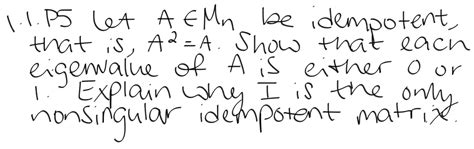 1.1.P5 Let A ∈ Mn be idempotent,
that is, A² = A. Show that each
eigenvalue of A is either 0 or
1. Explain why I is the only
nonsingular idempotent matrix.